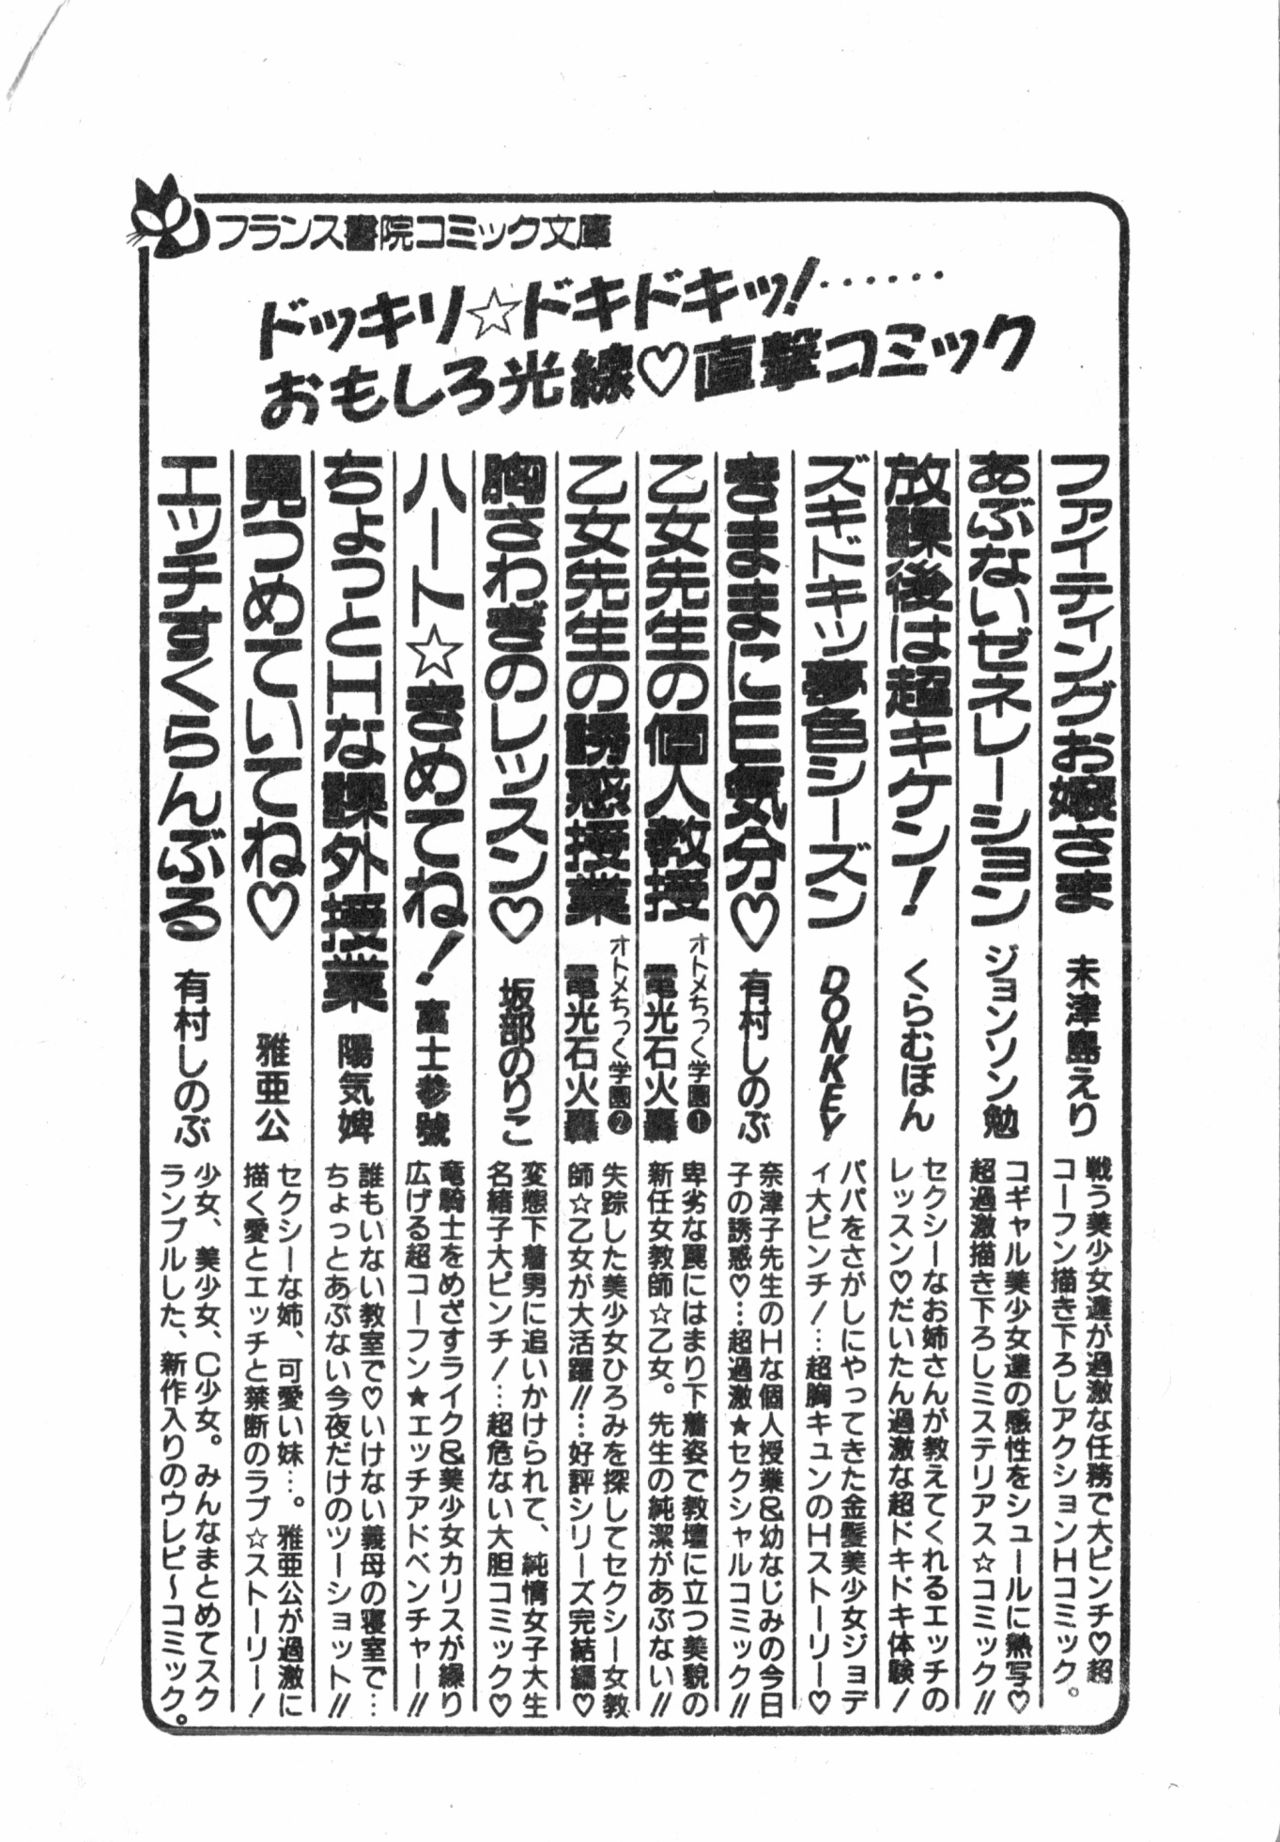 フランス書院コミック文庫
ドッキリ☆ドキドキッ!……
おもしろ光線♡直撃コミック
ファイティングお嬢さま 未津島えり
戦う美少女達が過激な任務で大ピンチ♡超
コーフン描き下ろしアクションHコミック。
あぶないゼネレーション ジョンソン勉
コギャル美少女達の感性をシュールに熱写♡
超過激描き下ろしミステリアス☆コミック!!
放課後は超キケン! くらむぼん
セクシーなお姉さんが教えてくれるエッチの
レッスン♡だいたん過激な超ドキドキ体験!
ズキドキッ夢色シーズン DONKEY
パパをさがしにやってきた金髪美少女ジョデ
ィ大ピンチ!…超胸キュンのHストーリー♡
きままにH気分♡ 有村しのぶ
奈津子先生のHな個人授業&幼なじみの今日
子の誘惑♡…超過激★セクシャルコミック!!
乙女先生の個人教授 オトメちっく学園❶ 電光石火轟
卑劣な罠にはまり下着姿で教壇に立つ美貌の
新任女教師☆乙女。先生の純潔があぶない!!
乙女先生の誘惑授業 オトメちっく学園❷ 電光石火轟
失踪した美少女ひろみを探してセクシー女教
師☆乙女が大活躍!!…好評シリーズ完結編♡
胸さわぎのレッスン♡ 坂部のりこ
変態下着男に追いかけられて、純情女子大生
名緒子大ピンチ!…超危ない大胆コミック♡
ハート☆きめてね!富士参號
竜騎士をめざすライク&美少女カリスが繰り
広げる超コーフン★エッチアドベンチャー!!
ちょっとHな課外授業 陽気婢
誰もいない教室で♡いけない義母の寝室で…
ちょっとあぶない今夜だけのツーショット!!
見つめていてね♡ 雅亜公
セクシーな姉、可愛い妹…。雅亜公が過激に
描く愛とエッチと禁断のラブ☆ストーリー!
エッチすくらんぶる 有村しのぶ
少女、美少女、C少女。みんなまとめてスク
ランブルした、新作入りのウレピ〜コミック。